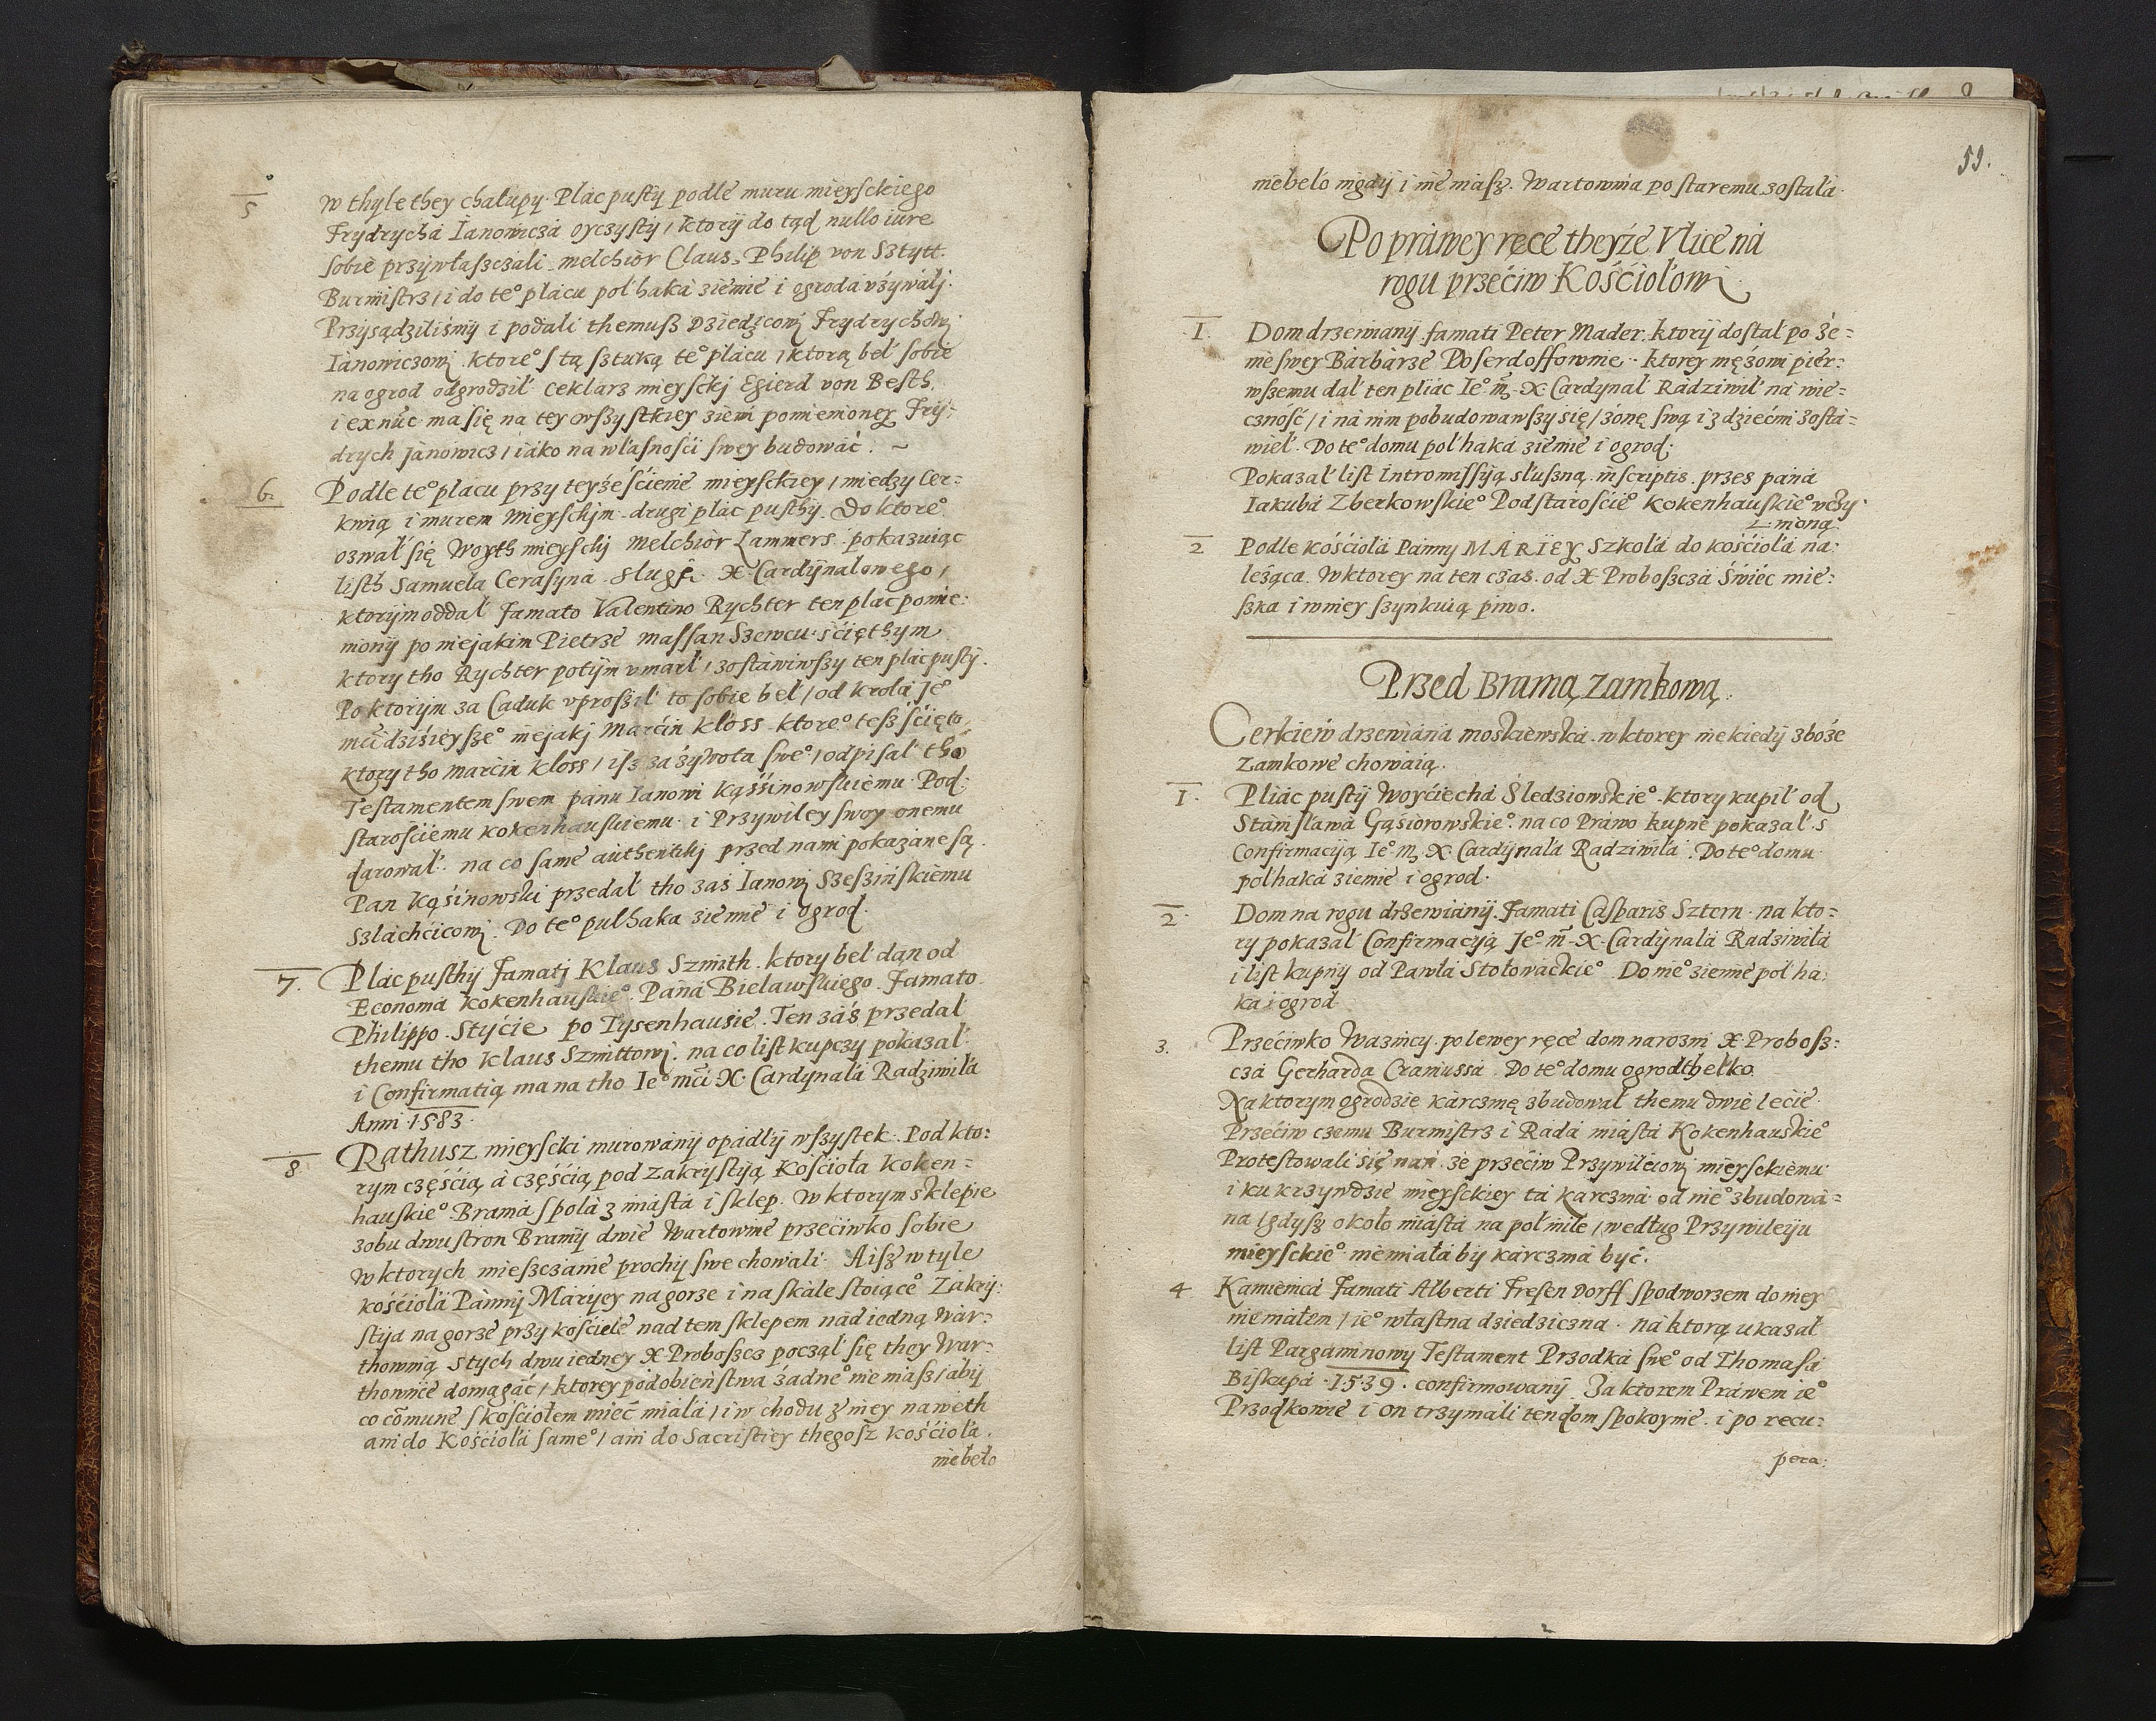 5
W thyle they chałupy. Plac pusty podle muru mieysckiego
Frydrycha Ianowicza oyczysty / ktorij do tąd nullo iure
sobie przywłaszczali melchior Claus, Philip von Sztytt.
Burmistrz / i do te° placu poł haka ziemie i ogroda vżywalj.
Przysądziliśmy i podali themusz Dziedzicowj Frydrychowj
Ianowiczowj. ktore° s tą sztuką te° placu / ktorą beł sobie
na ogrod odgrodził ceklarz mieysckj Egierd von Besth,
i ex nūc ma się na tey wszystkiey ziemi pomienioney Fry=
drych Janowicz / iako na własności swey budować. ~
6. Podle te° placu przy teyże ściemie mieysckiey / miedzy Cer=
kwią i murem mieysckim drugi plac pusthy. Do ktore°
ozwał się Woyth mieyscky Melchior Lammers. pokazuiąc
listh Samuela Cerasyna. Slugi. X. Cardynałowego /
ktorijm oddał Famato Valentino Rychter ten plac pomie=
niony po niejakim Pietrze massan Szewcu. ścięthym
ktory tho Rychter potym vmarł / zostawiwszy ten plac pusty.
Po ktorym za Caduk vprosił to sobie beł / od krola Je°
mci dzisieysze° niejakj Marcin kloss. ktore° tesz ścięto
ktory tho Marcin kloss / isz za żywota swe° / odpisał tho
Testamentem swem panu Ianowi Kąśsinowskiemu Pod=
starościemu kokenhauskiemu. i Przywiley swoy onemu
darował. na co same authentikj przed nami pokazane są.
Pan Kąsinowski przedał tho zaś Ianowj Szeszińskiemu
Szlachcicowj. Do te° pułhaka ziemie i ogrod.
7. Plac pusthy Famatj Klaus Szmith. ktory beł dan od
Economa kokenhauskie° Pana Bielawskiego. Famato
Philippo. Stycie po Tysenhausie. Ten zaś przedał
themu tho Klaus Szmittowj. na co list kupczy pokazał
i Confirmatią ma na tho Ie° mci X. Cardynala Radziwiła
Anni 1583.
8 Rathusz mieyscki murowany opadły wszystek. Pod kto=
rym częścią a częścią pod zakrystyą Kościoła koken=
hauskie° Brama społa z miasta i sklep. W ktorym sklepie
z obu dwu stron Bramy dwie Wartownie przeciwko sobie
w ktorych mieszczanie prochy swe chowali. A isz w tyle
kościoła Panny Maryey na gorze i na skale stoiące° Zakry=
stija na gorze przy kościele nad tem sklepem nad iedną War=
thownią s tych dwu iedney X. Proboszcz począł się they War=
thownie domagać / ktorey podobieństwa żadne° nie masz / aby
co cōmune s kościołem mieć miała / i w chodu z niey naweth
ani do Kościoła same° / ani do Sacristiey thegosz kościoła.
niebeło
59.
niebeło nigdy i nie masz. Wartownia po staremu została.
Po prawey ręce theyże Vlice na
rogu przeciw Kościołowi
1. Dom drzewiany famati Peter Mader. ktory dostał po że=
nie swey Barbarze Poserdoffownie. ktorey mężowi pier=
wszemu dał ten pliac Ie° m̄. X Cardynał Radziwił na wie=
czność / i na nim pobudowawszy się / żonę swą i z dziećmi zosta=
wieł. Do te° domu poł haka ziemie i ogrod.
Pokazał list Intromissiją słuszną inscriptis przes pana
Iakuba Zberkowskie° Podstaroście° kokenhauskie° vczy
nioną
2 Podle kościoła Panny MARIEY Szkoła do kościoła na=
leżąca. W ktorey na ten czas. od X Proboszcza Świec mie=
szka i w niey szynkuią piwo.
Przed Bramą zamkową.
Cerkiew drzewiana moskiewska. w ktorey niekiedy zboże
zamkowe chowaią.
1. Pliac pusty Woyciecha Śledziowskie°. ktory kupił od
Stanisława Gąsiorowskie° na co Prawo kupne pokazał. s
Confirmacyją Ie° m̄ X. Cardynała Radziwiła. Do te° domu
poł haka ziemie i ogrod.
2. Dom na rogu drzewiany. Famati Casparis Sztern. na kto=
ry pokazał Confirmacyją Je° m̄ X. Cardynala Radziwiła
i list kupny od Pawła Stołowackie°. Do nie° ziemie poł ha=
ka i ogrod
3. Przeciwko Waznicy po lewey ręce dom narozni X Probosz=
cza Gerharda Craniussa. Do te° domu ogrod thelko.
Na ktorym ogrodzie karczmę zbudował themu dwie lecie.
Przeciw czemu Burmistrz i Rada miasta Kokenhauskie°
Protestowali się nań. że przeciw Przywileiowj mieysckiemu
i ku krzywdzie mieysckiey ta karczma od nie° zbudowa=
na / gdysz około miasta na poł mile / według Przywileyu
mieysckie° nie miała by karczma być.
4 Kamienica Famati Alberti Fresen Dorff s podworzem do niey
niemałem / ie° własna dziedziczna. na ktorą ukazał
list Pargaminowy Testament Przodka swe° od Thomasa
Biskupa 1539. confirmowany. Za ktorem Prawem ie°
Przodkowie i on trzymali ten dom spokoynie. i po recu=
pera: